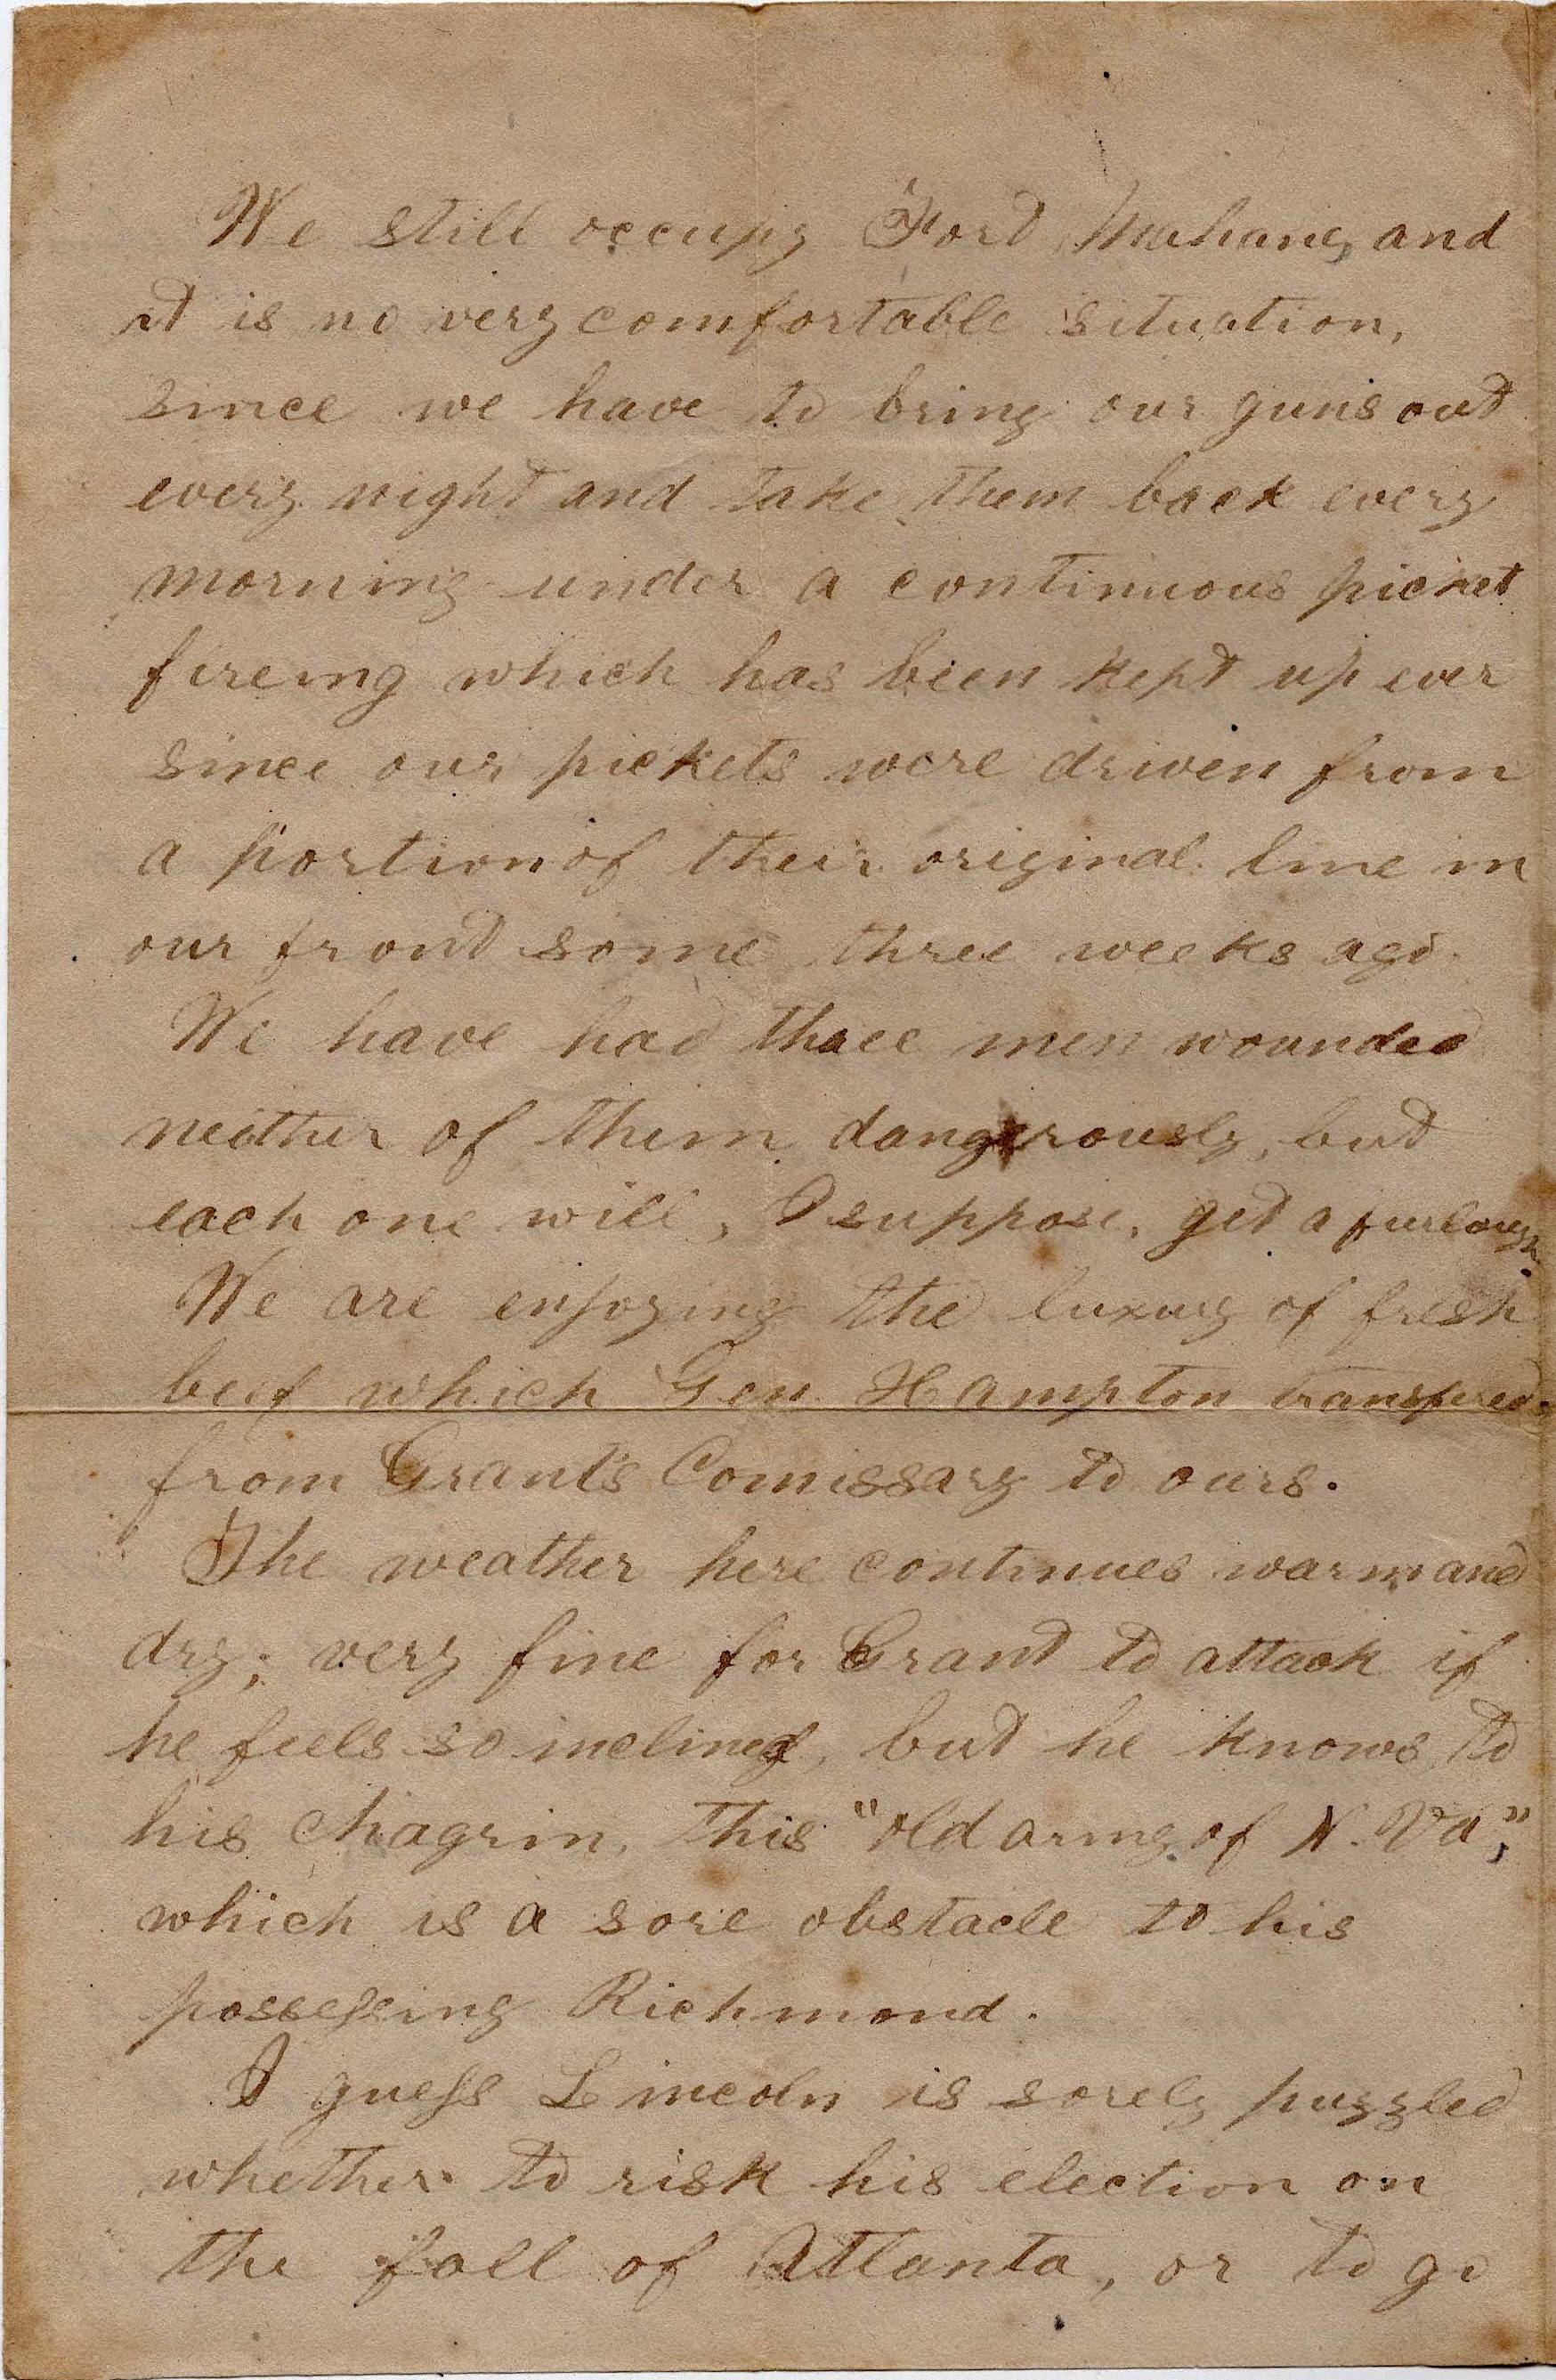 We still occupy Fort Mahane, and
it is no very comfortable situation,
since we have to bring our guns out
every night and take them back every
morning under a continuous picket
fireing which has been kept up ever
since our pickets were driven from
a portion of their original line in
our front some three weeks ago.
We have had three men wounded
neither of them dangerously, but
each one will, I suppose, get a furlough.
We are enjoying the luxury of fresh
beef which Gen Hampton transfered
from Grant's Comissary to ours.
The weather here continues warm and
dry; very fine for Grant to attack if
he feels so inclined, but he knows, to
his chagrin, this "old army of N. Va",
which is a sore obstacle to his
possessing Richmond.
I guess Lincoln is sorely puzzled
whether to risk his election on
the fall of Atlanta, or to go